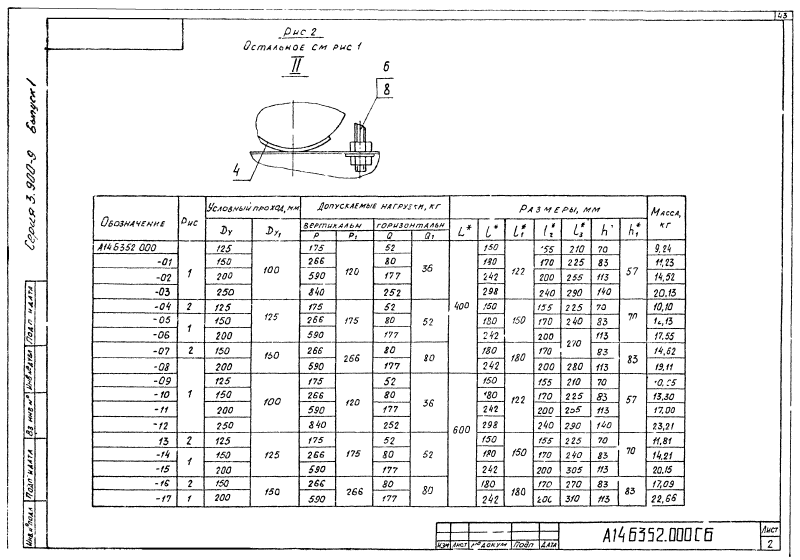 43
Рис 2
Остальное см рис 1
II
6
8
4
Серия 3.900-9 Выпуск 1
Обозначение Рис Условный проход, мм Допускаемые нагрузки, кг L* Размеры, мм Масса, кг
Dу Dу1 вертикальн горизонтальн l* l1* l2* l3* h* h1*
P P1 Q Q1
А14Б352.000 1 125 100 175 120 52 36 400 150 122 155 210 70 57 9,24
-01 150 266 80 180 170 225 83 11,23
-02 200 590 177 242 200 255 113 14,52
-03 250 840 252 298 240 290 140 20,13
-04 2 125 125 175 175 52 52 150 150 155 225 70 70 10,10
-05 1 150 266 80 180 170 240 83 12,13
-06 200 590 177 242 200 270 113 17,55
-07 2 150 150 266 266 80 80 180 180 170 83 83 14,62
-08 200 590 177 242 200 280 113 19,11
-09 1 125 100 175 120 52 36 600 150 122 155 210 70 57
-10 150 266 80 180 170 225 83 13,30
-11 200 590 177 242 200 113 17,00
-12 250 840 252 298 240 290 140 23,21
13 2 125 125 175 175 52 52 150 150 155 225 70 70 11,81
-14 1 150 266 80 180 170 240 83 14,21
-15 200 590 177 242 200 305 113 20,15
-16 2 150 150 266 266 80 80 180 180 170 270 83 83 17,09
-17 1 200 590 177 242 200 310 113 22,66
Инв. № подл Подп и дата Вз инв № Инв № дубл Подп и дата
Изм Лист № докум Подп Дата
А14Б352.000СБ
Лист
2